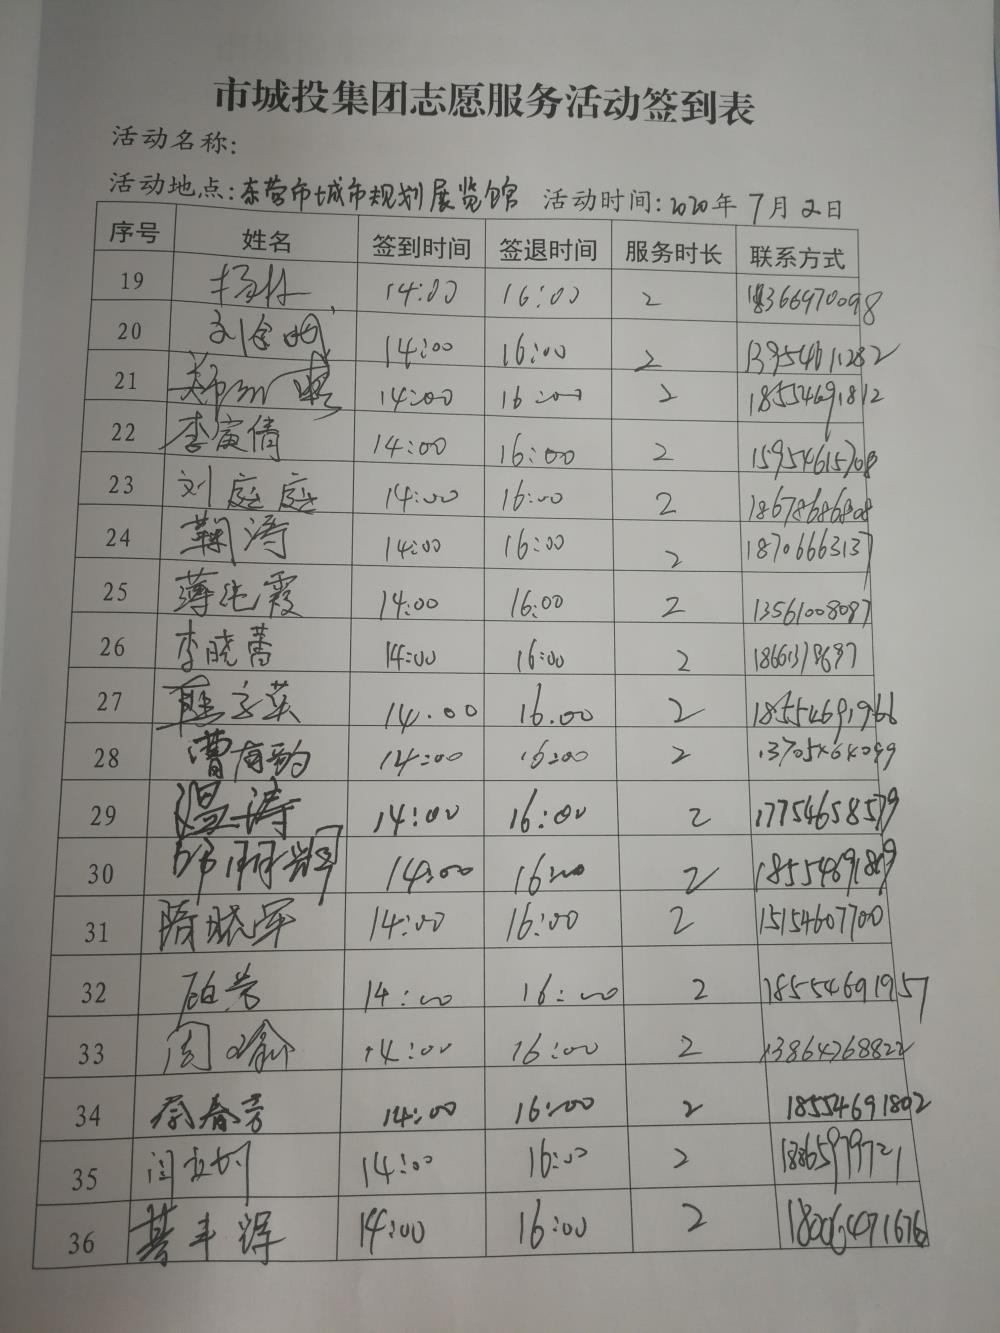 市城投集团志愿服务活动签到表
活动名称:
活动地点:东营市城市规划展览馆 活动时间:2020年7月2日
序号 姓名 签到时间 签退时间 服务时长 联系方式
19 杨林 14:00 16:00 2 18366970098
20 14:00 16:00 2 13954611282
21 14:00 16:00 2 18554691812
22 李寅倩 14:00 16:00 2 15954615708
23 刘庭庭 14:00 16:00 2 18678686808
24 鞠涛 14:00 16:00 2 18706663137
25 薄纯霞 14:00 16:00 2 13561008087
26 李晓蕾 14:00 16:00 2 18661378687
27 14.00 16.00 2 18554691966
28 14:00 16:00 2
29 温涛 14:00 16:00 2 17754658579
30 14:00 16:00 2 18554691809
31 隋晓军 14:00 16:00 2 15154607700
32 14:00 16:00 2 18554691957
33 周瑜 14:00 16:00 2 13864768822
34 蔡春芳 14:00 16:00 2 18554691802
35 14:00 16:00 2 18865979721
36 綦丰泽 14:00 16:00 2 18006471676